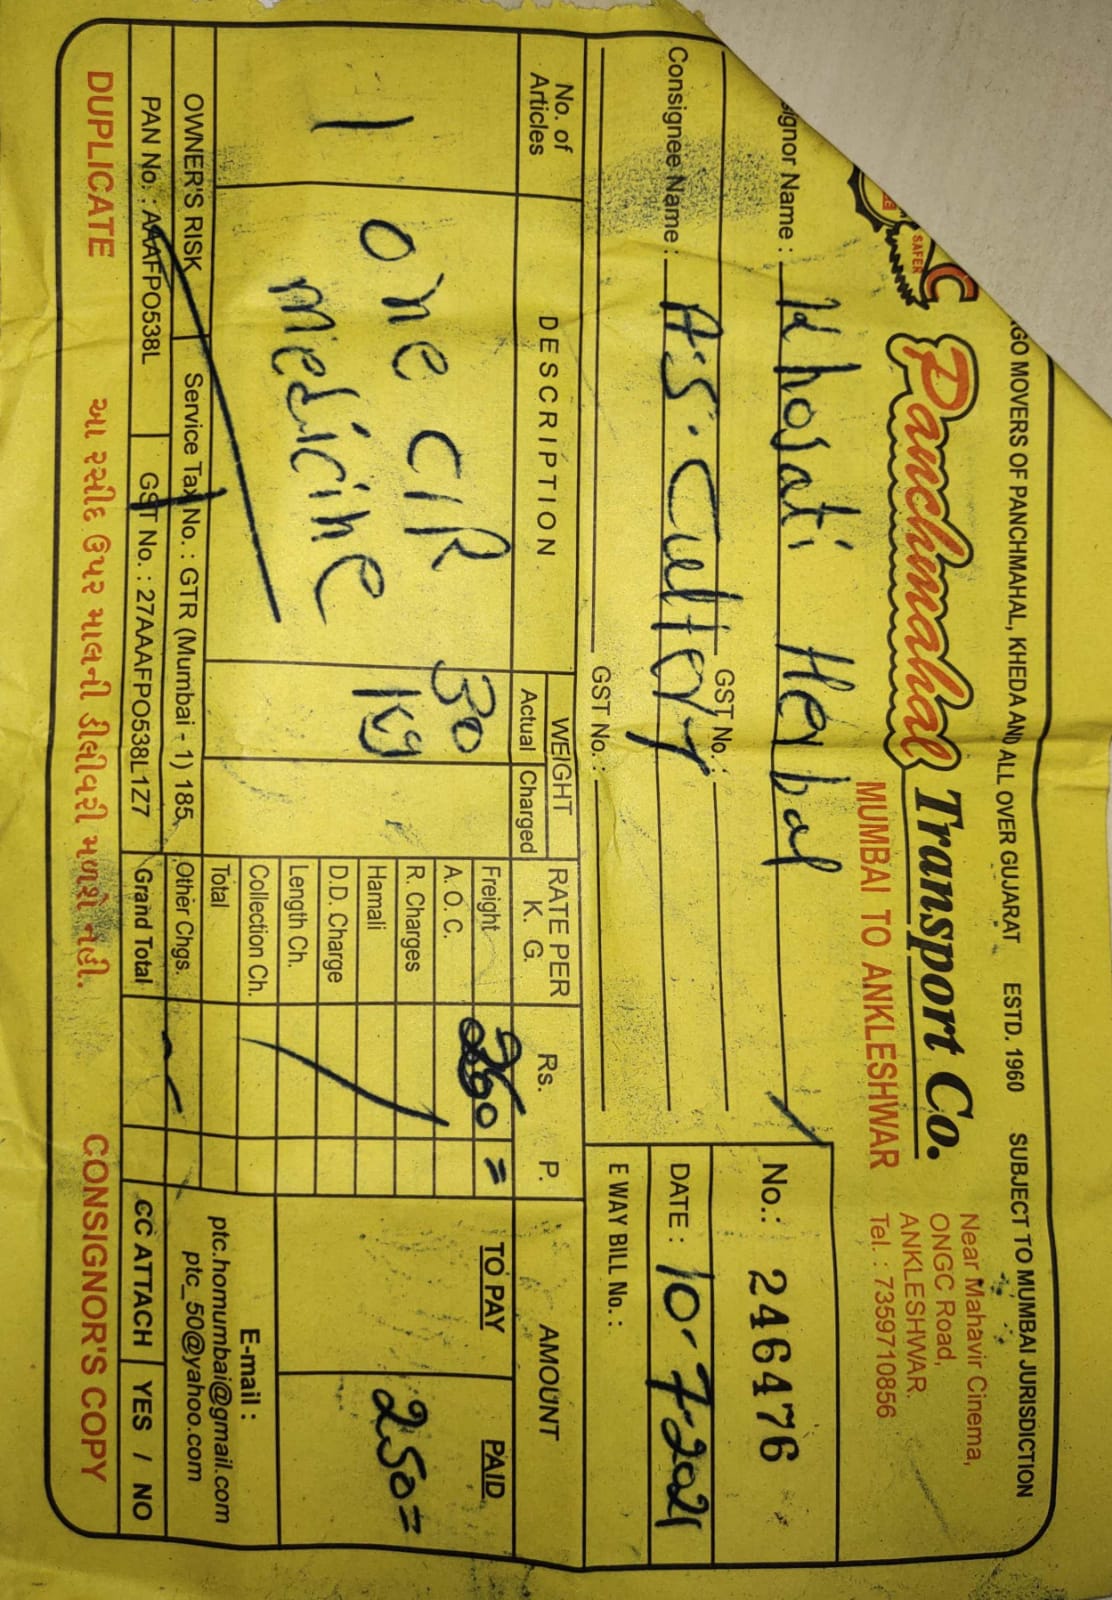 GO MOVERS OF PANCHMAHAL, KHEDA AND ALL OVER GUJARAT ESTD. 1960 SUBJECT TO MUMBAI JURISDICTION
SAFER
Panchmahal Transport Co.
MUMBAI TO ANKLESHWAR
Near Mahavir Cinema,
ONGC Road,
ANKLESHWAR.
Tel. : 7359710856
signor Name : Khojati Herbal
GST No. :
No.: 246476
Consignee Name : A.S. Cutlery
GST No. :
DATE : 10-7-2021
E WAY BILL No. :
No. of Articles
DESCRIPTION
WEIGHT
Actual Charged
RATE PER K. G.
Rs. P.
AMOUNT
1
one C/R
medicine
30
kg
Freight 250 =
A. O. C.
R. Charges
Hamali
D.D. Charge
Length Ch.
Collection Ch.
Total
Other Chgs.
Grand Total
TO PAY
PAID
250 =
E-mail :
ptc.homumbai@gmail.com
ptc_50@yahoo.com
OWNER'S RISK Service Tax No. : GTR (Mumbai - 1) 185
PAN No. : AAAFPO538L GST No. : 27AAAFPO538L1Z7
CC ATTACH YES / NO
DUPLICATE આ રસીદ ઉપર માલની ડીલીવરી મળશે નહી. CONSIGNOR'S COPY